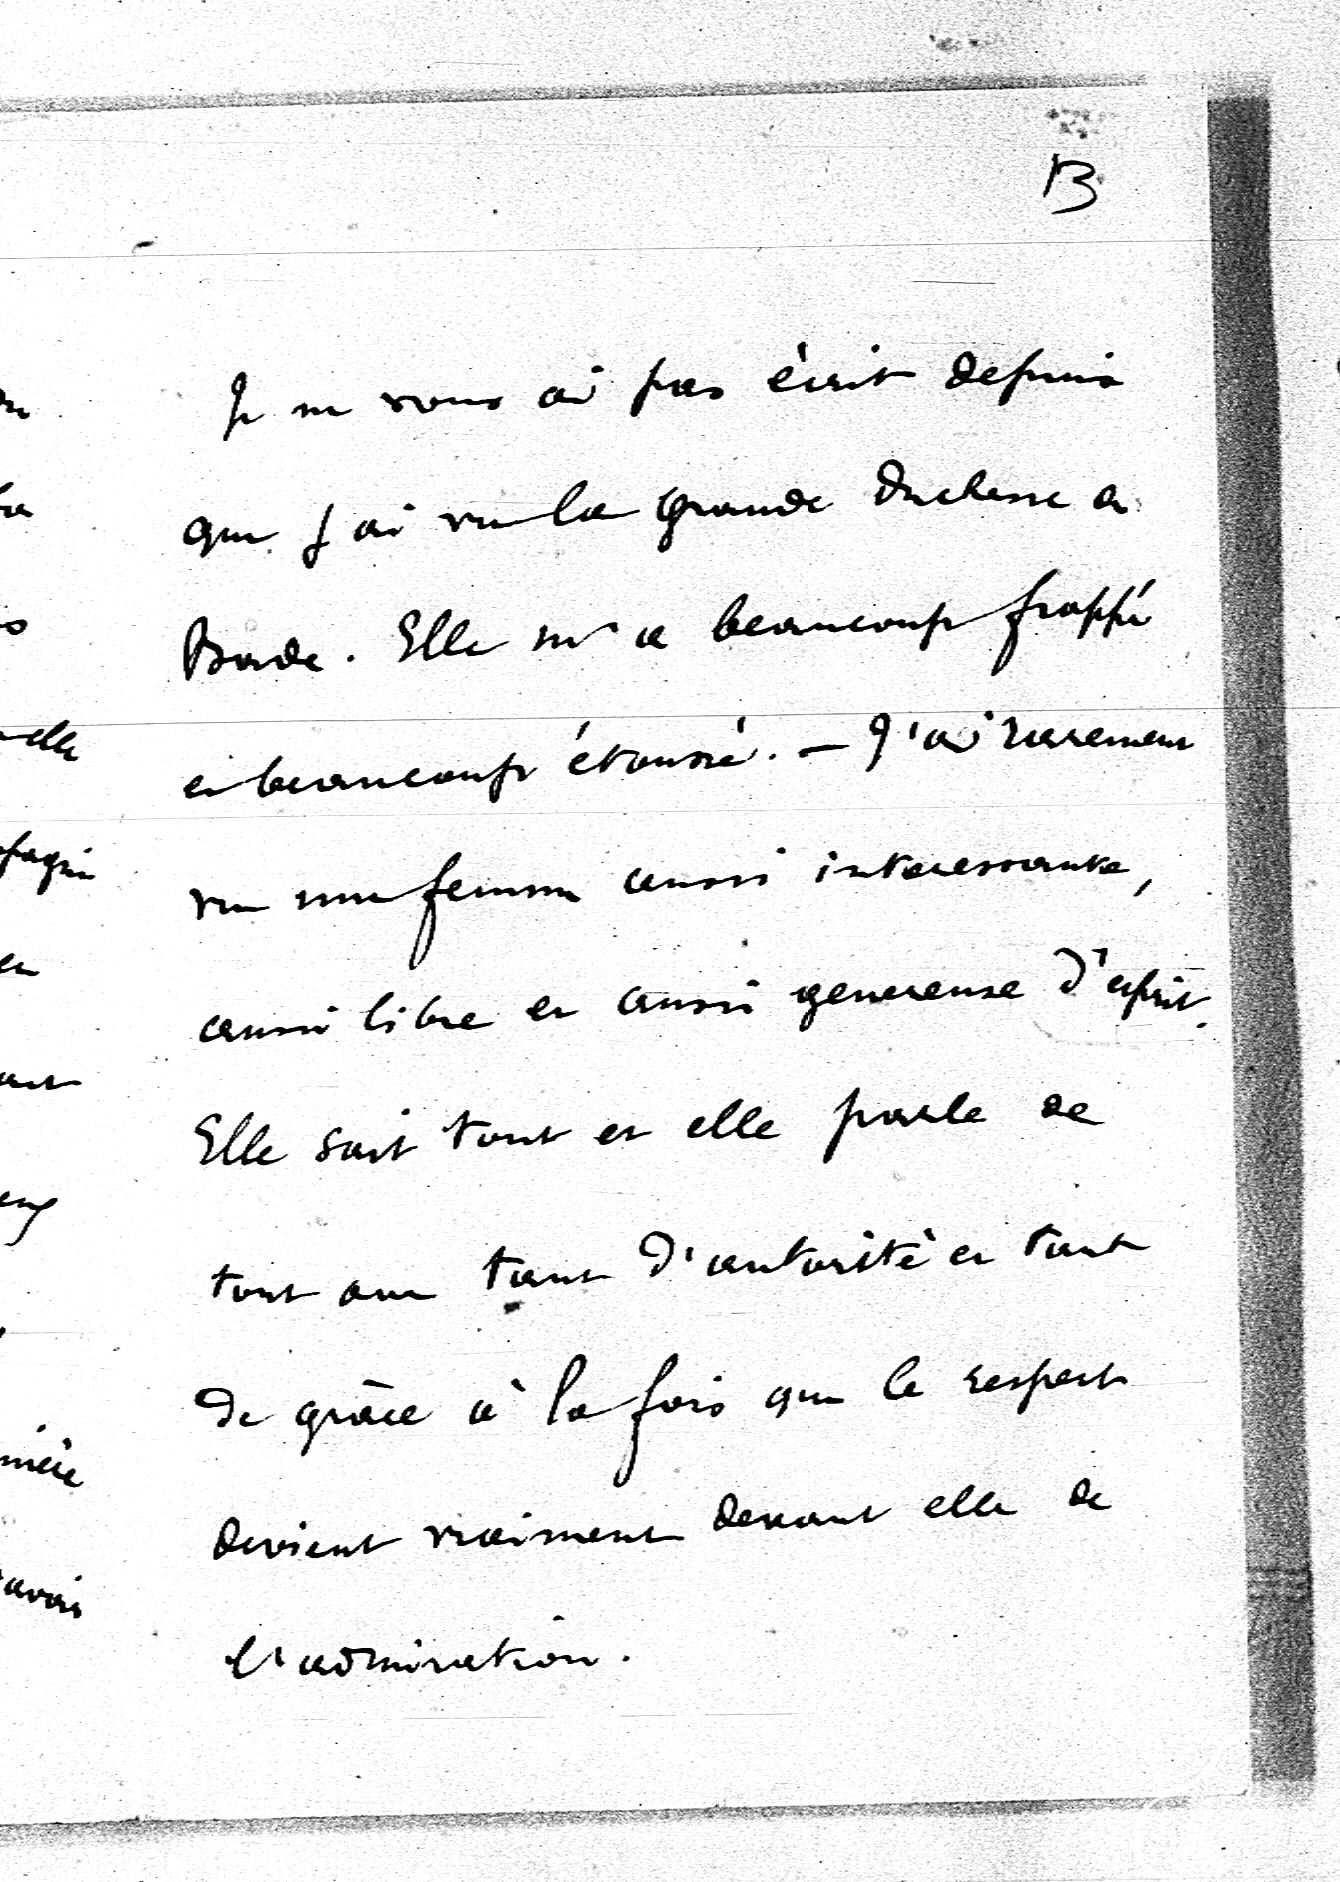 B
Je ne vous ai pas écrit depuis
que j'ai vu la grande duchesse de
Bade. Elle m'a beaucoup frappé
et beaucoup étonné. — J'ai rarement
vu une femme aussi interessante,
aussi libre et aussi genereuse d'esprit.
Elle sait tout et elle parle de
tout avec tant d'autorité et tant
de grâce à la fois que le respect
devient vraiment devant elle de
l'admiration.